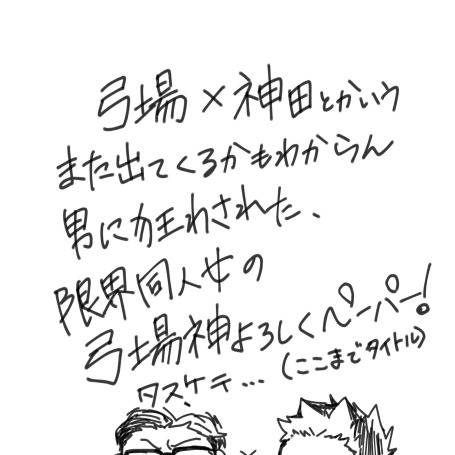 弓場×神田とかいう
また出てくるかもわからん
男に狂わされた、
限界同人女の
弓場神よろしくペーパー!
(ここまでタイトル)
タスケテ…
×